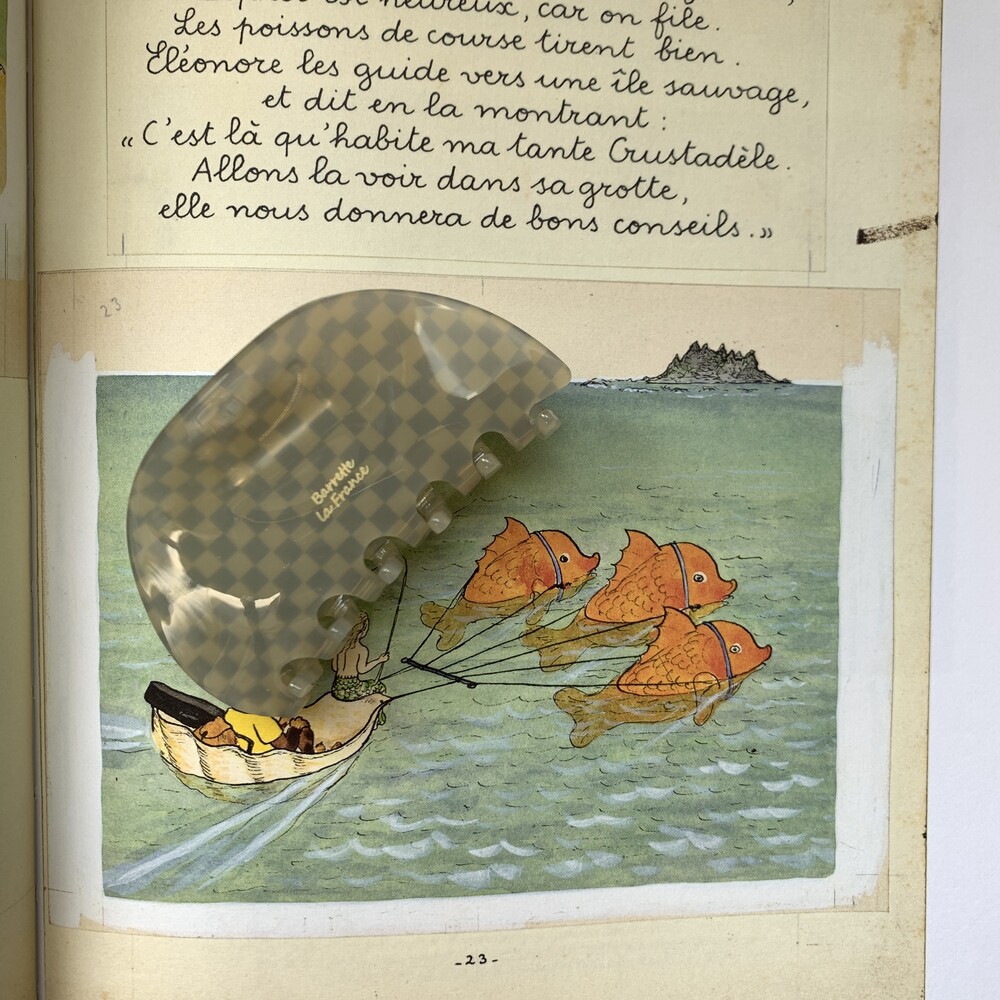 est heureux, car on file.
Les poissons de course tirent bien.
Éléonore les guide vers une île sauvage,
et dit en la montrant :
« C'est là qu'habite ma tante Crustadèle.
Allons la voir dans sa grotte,
elle nous donnera de bons conseils. »
23
Barrette
la France
- 23 -